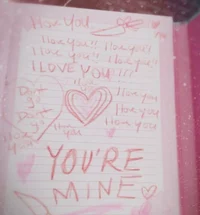 I Love You!
I Love You!! I Love You!
I Love You!! I Love You!!
I LOVE YOU!!!
I Love You
I Love You
I Love You
I Love You
I Love You
YOU'RE
MINE